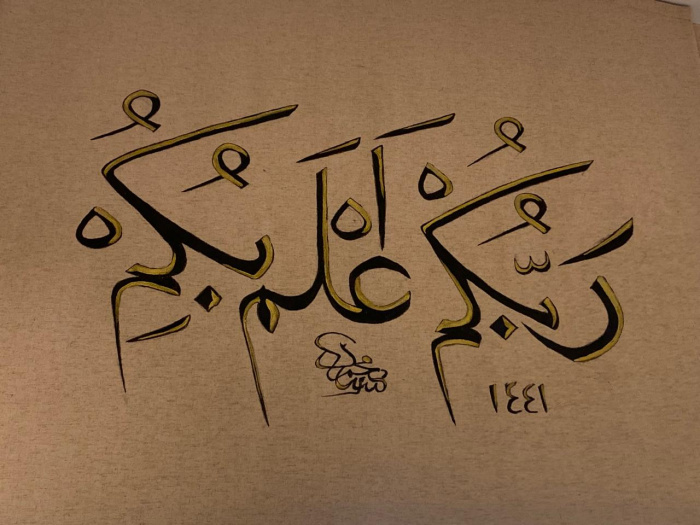 رَبُّكُمْ اَعْلَمُ بِكُمْ
١٤٤١